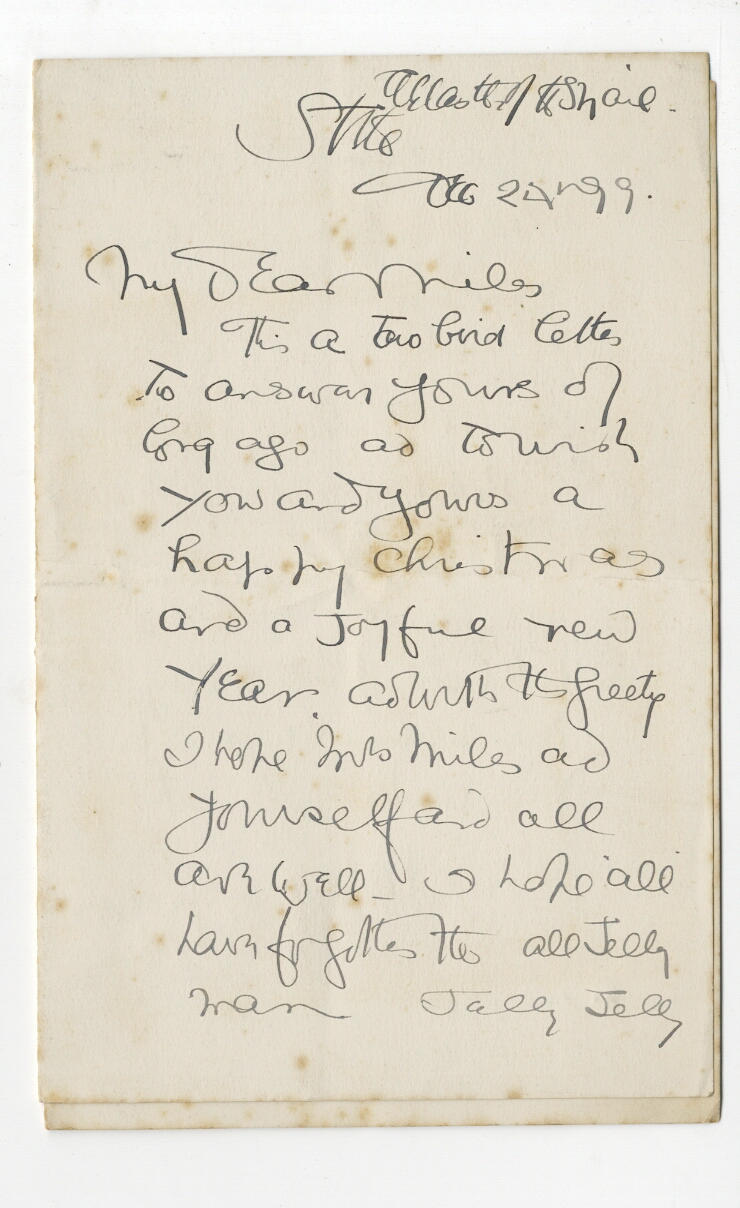 Dec 99.
My Dear Miles
This a two bird letter
To answar yours of
long ago ad to wish
you and yours a
happy christmas
and a Joyful new
YEar. ad with the greetg
I hope Mrs Miles ad
yourself and all
arE WEll - I hope all
have forgotten the all Jelly
man Jally Jelly